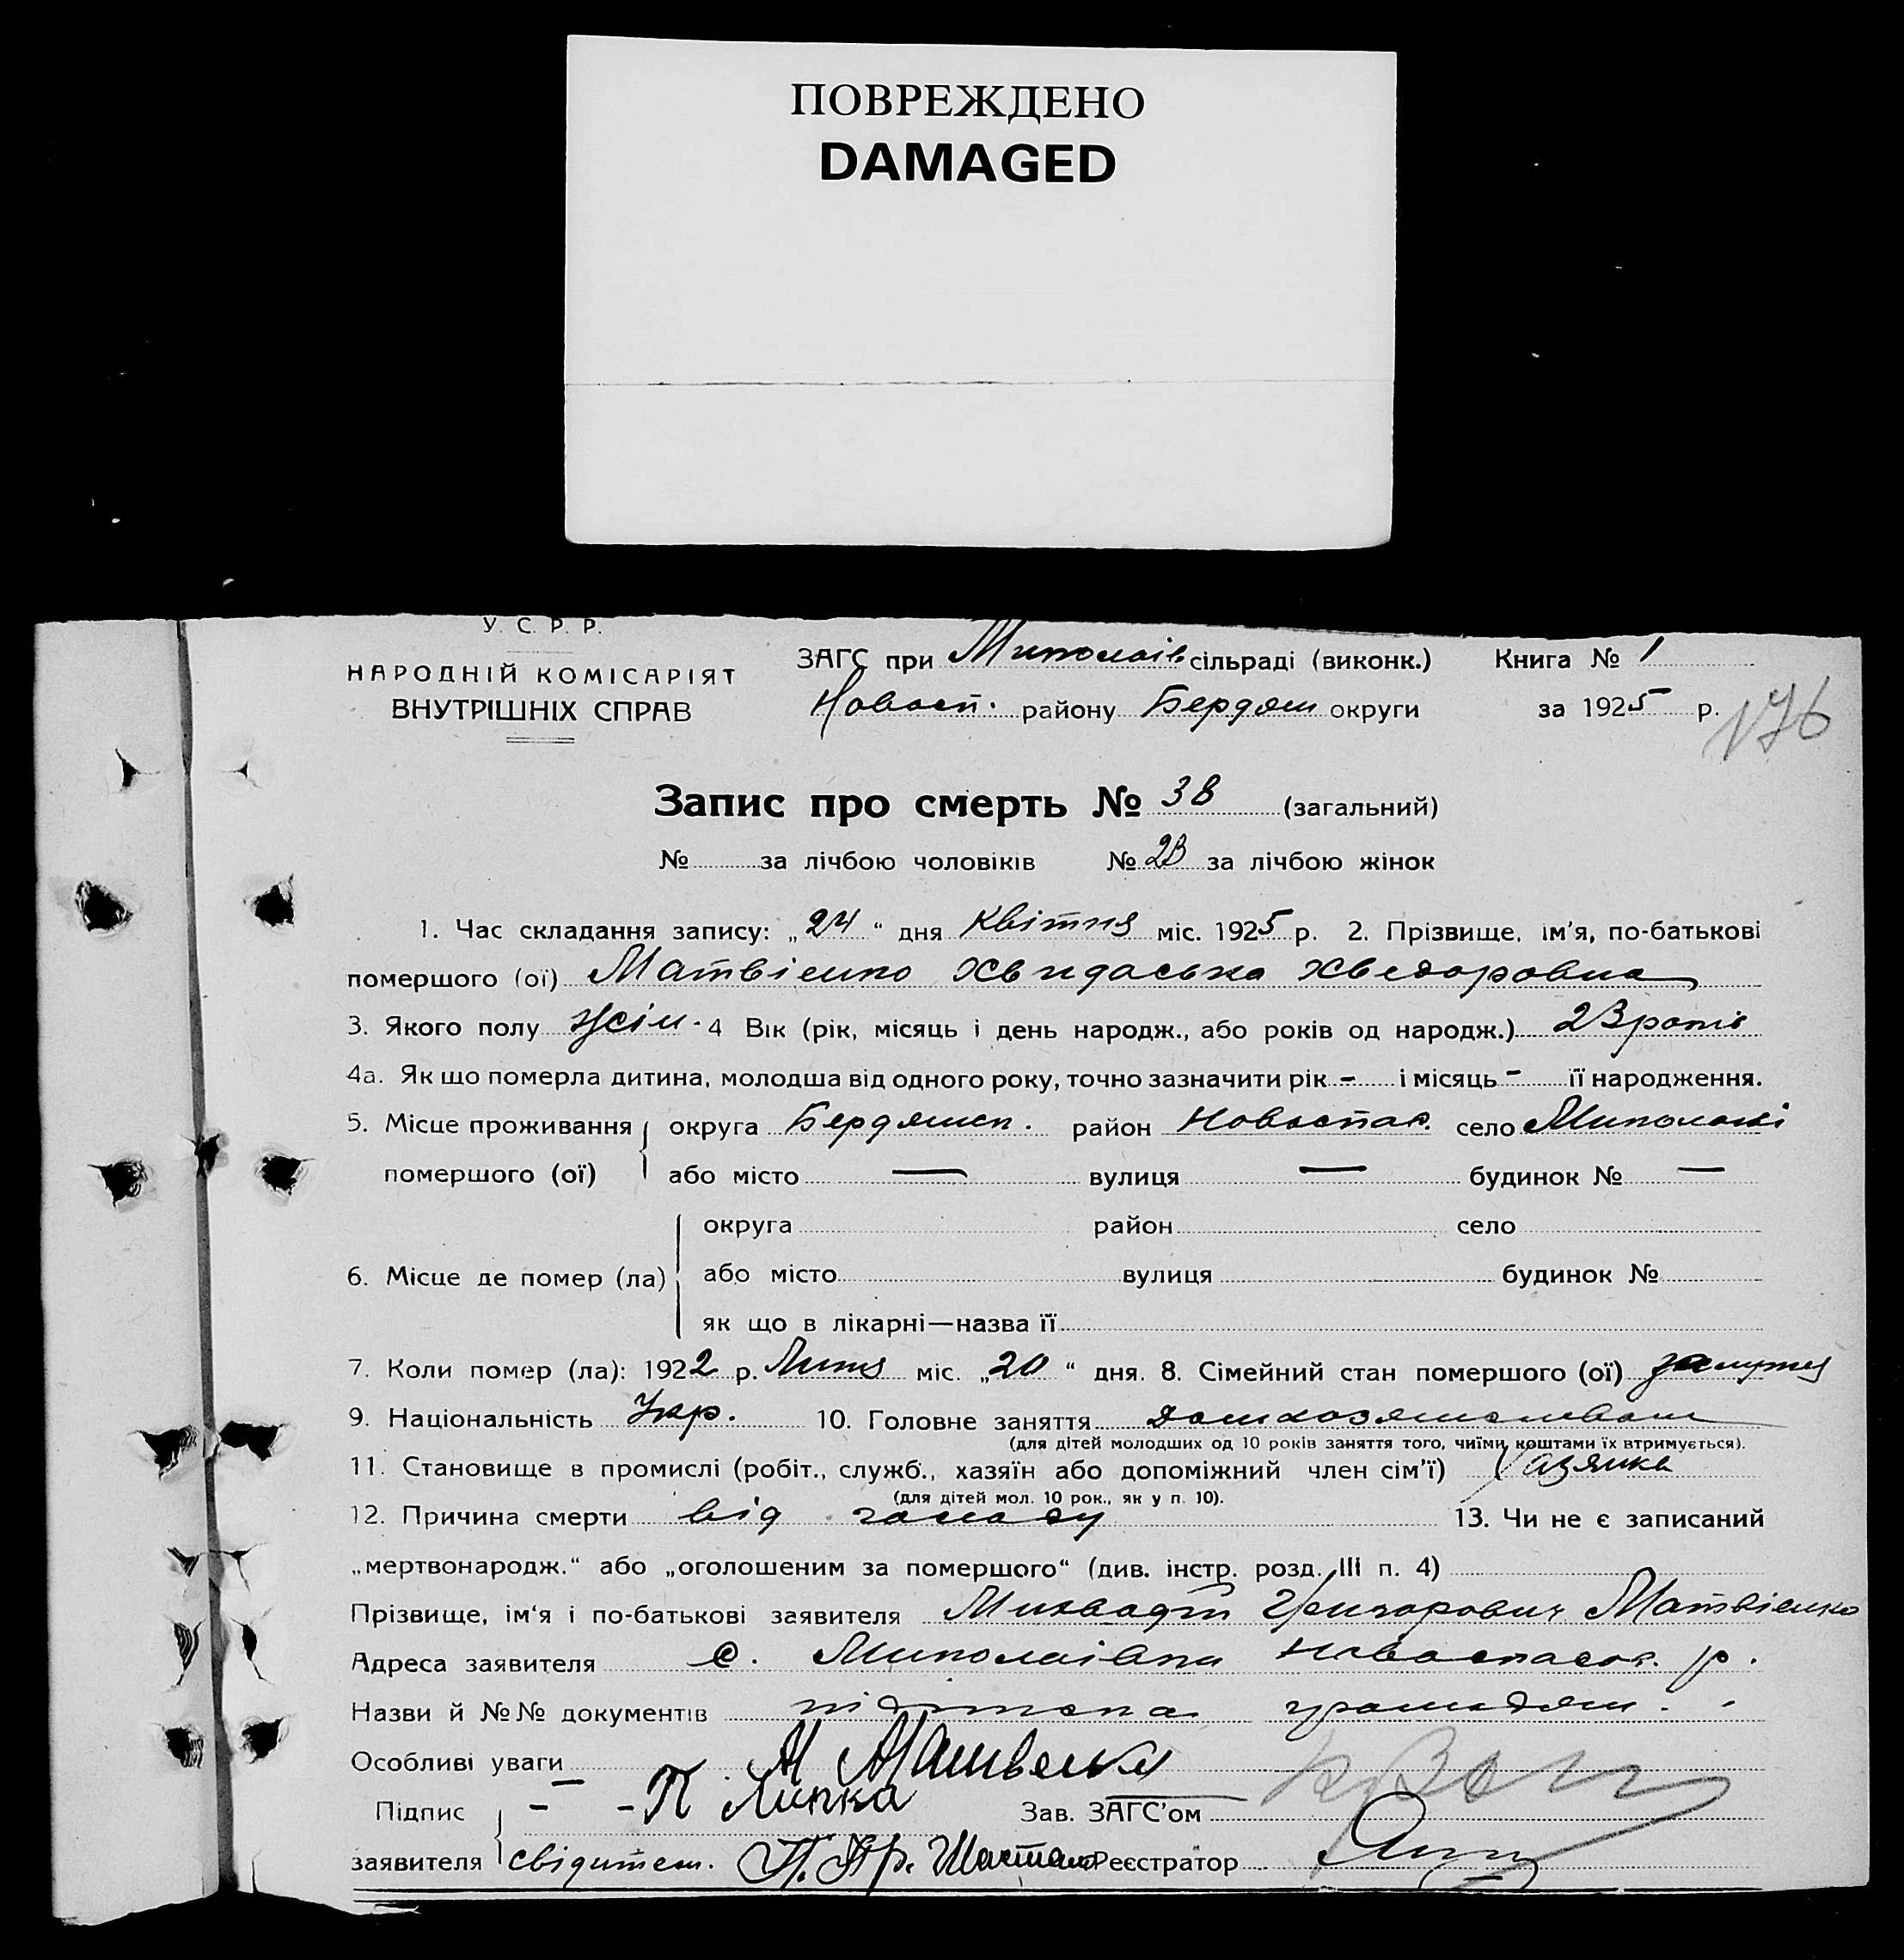 ПОВРЕЖДЕНО
DAMAGED
У. С. Р. Р.
НАРОДНІЙ КОМІСАРІЯТ
ВНУТРІШНІХ СПРАВ
ЗАГС при Миколаів сільраді (виконк.) Книга № 1
Новосп. району Бердян округи за 1925 р.
176
Запис про смерть № 38 (загальний)
№ за лічбою чоловіків № 23 за лічбою жінок
1. Час складання запису: „24“ дня Квітня міс. 1925 р. 2. Прізвище, ім'я, по-батькові
помершого (ої) Матвіенко Хведоровна
3. Якого полу Жін. 4 Вік (рік, місяць і день народж., або років од народж.) 23 років
4а. Як що померла дитина, молодша від одного року, точно зазначити рік - і місяць - її народження.
5. Місце проживання округа Бердянск. район Новоспас. село
помершого (ої) або місто — вулиця — будинок № —
округа район село
6. Місце де помер (ла) або місто вулиця будинок №
як що в лікарні—назва її
7. Коли помер (ла): 1922 р. міс. „20“ дня. 8. Сімейний стан помершого (ої) замужня
9. Національність Укр. 10. Головне заняття
(для дітей молодших од 10 років заняття того, чиїми коштами їх втримується).
11. Становище в промислі (робіт., служб., хазяїн або допоміжний член сім'ї) Хазяйка
(для дітей мол. 10 рок., як у п. 10).
12. Причина смерти від голоду 13. Чи не є записаний
„мертвонародж.“ або „оголошеним за помершого“ (див. інстр. розд. III п. 4)
Прізвище, ім'я і по-батькові заявителя Григорович Матвіенко
Адреса заявителя с. Миколаівка Новоспаск. р.
Назви й №№ документів підписка громадян.
Особливі уваги — М Матвенко
Підпис - - П Липка Зав. ЗАГС'ом
заявителя свідител. Реєстратор